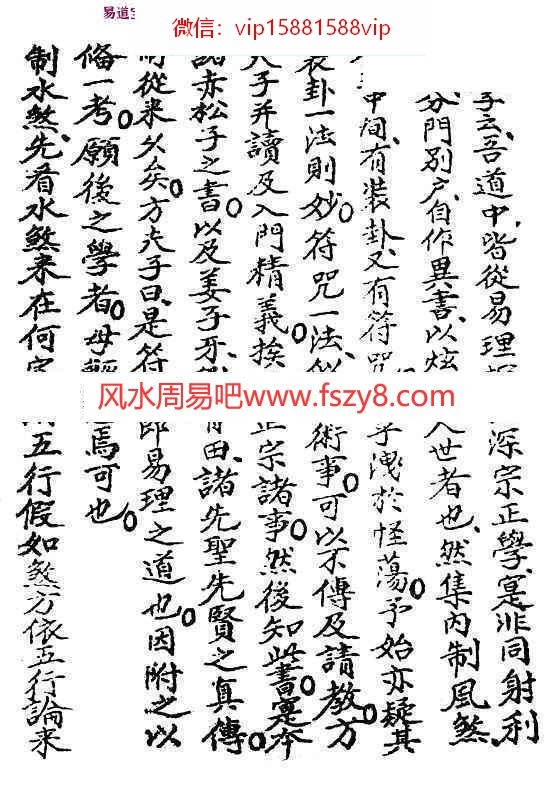 易道
微信：vip15881588vip
云、吾道中、皆從易理
分門別户、自作異書、以炫
中间、有裝卦、又有符咒
裝卦一法則妙。符咒一法、似
夫子并讀及入門精義、挨
諸赤松子之書。以及姜子牙、
從来久矣。方夫子曰、是符
俻一考。願後之學者。毋輕
制水煞、先看水煞来在何宫
风水周易吧www.fszy8.com
深宗正學、寔非同射利
人世者也、然集內制風煞、
乎洩於怪蕩。予始亦疑其
術事、可以不傳、及請教方
正宗諸事。然後知此書。寔本
田、諸先聖先賢之真傳。
即易理之道也。因附之以
焉可也。
五行假如煞方依五行論来